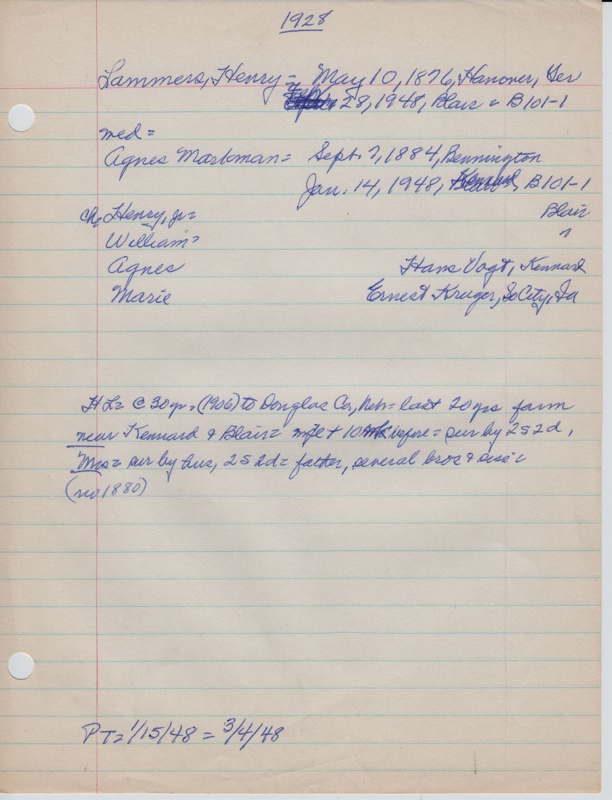 1928
Lammers, Henry = May 10, 1876, Hanover, Ger
Feb. 28, 1948, Blair = B 101-1
med =
Agnes Markman = Sept. 7, 1884, Bennington
Jan. 14, 1948, Kennard, B101-1
Blair
"
ch, Henry, jr =
William =
Agnes Hans Vogt, Kennard
Marie Ernest Kruger, So City, Ia
HL = @ 30 yr. = (1906) to Douglas Co, Neb = last 20 yrs farm
near Kennard & Blair = wife + 10 before = sur by 2s 2d,
Mrs = sur by hus, 2s 2d = father, several bros & sis =
(no 1880)
PT = 1/15/48 = 3/4/48